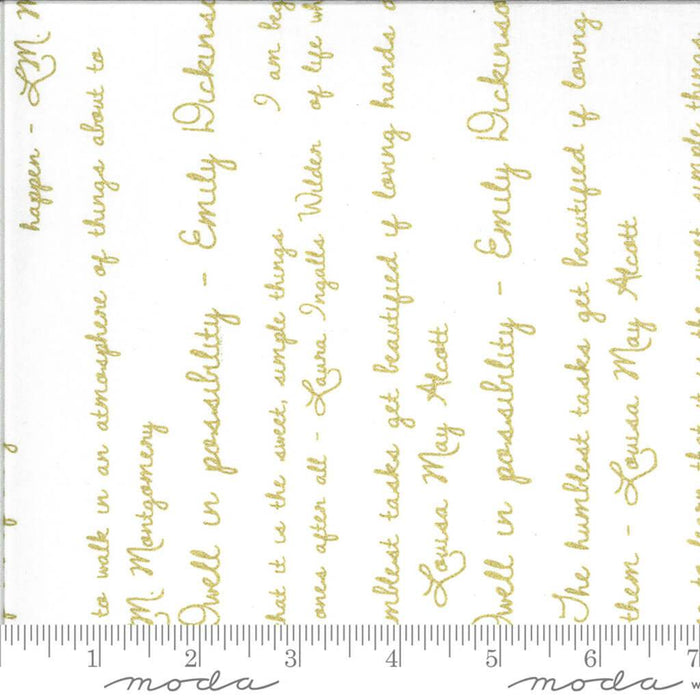 happen - L.M. M
to walk in an atmosphere of things about to
M. Montgomery
Dwell in possibility - Emily Dickinso
I am beg
hat it is the sweet, simple things
of life wh
ones after all - Laura Ingalls Wilder
mblest tasks get beautified if loving hands
Louisa May Alcott
Dwell in possibility - Emily Dickinso
The humblest tasks get beautified if loving
them - Louisa May Alcott
sweet simple things
1 2 3 4 5 6 7
moda moda